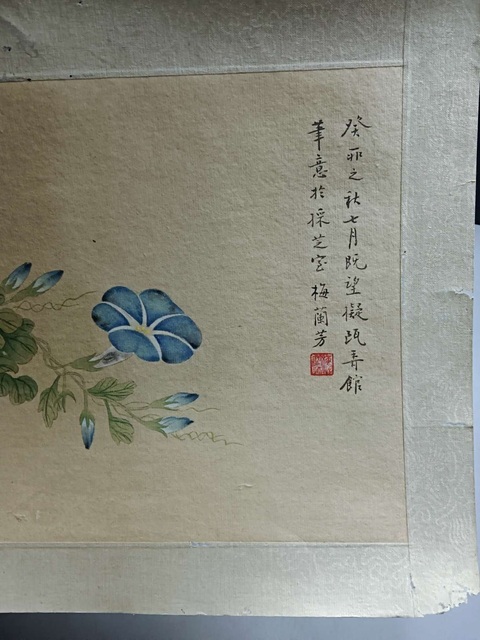 癸卯之秋七月既望擬甌弄館
筆意於採芝室 梅蘭芳